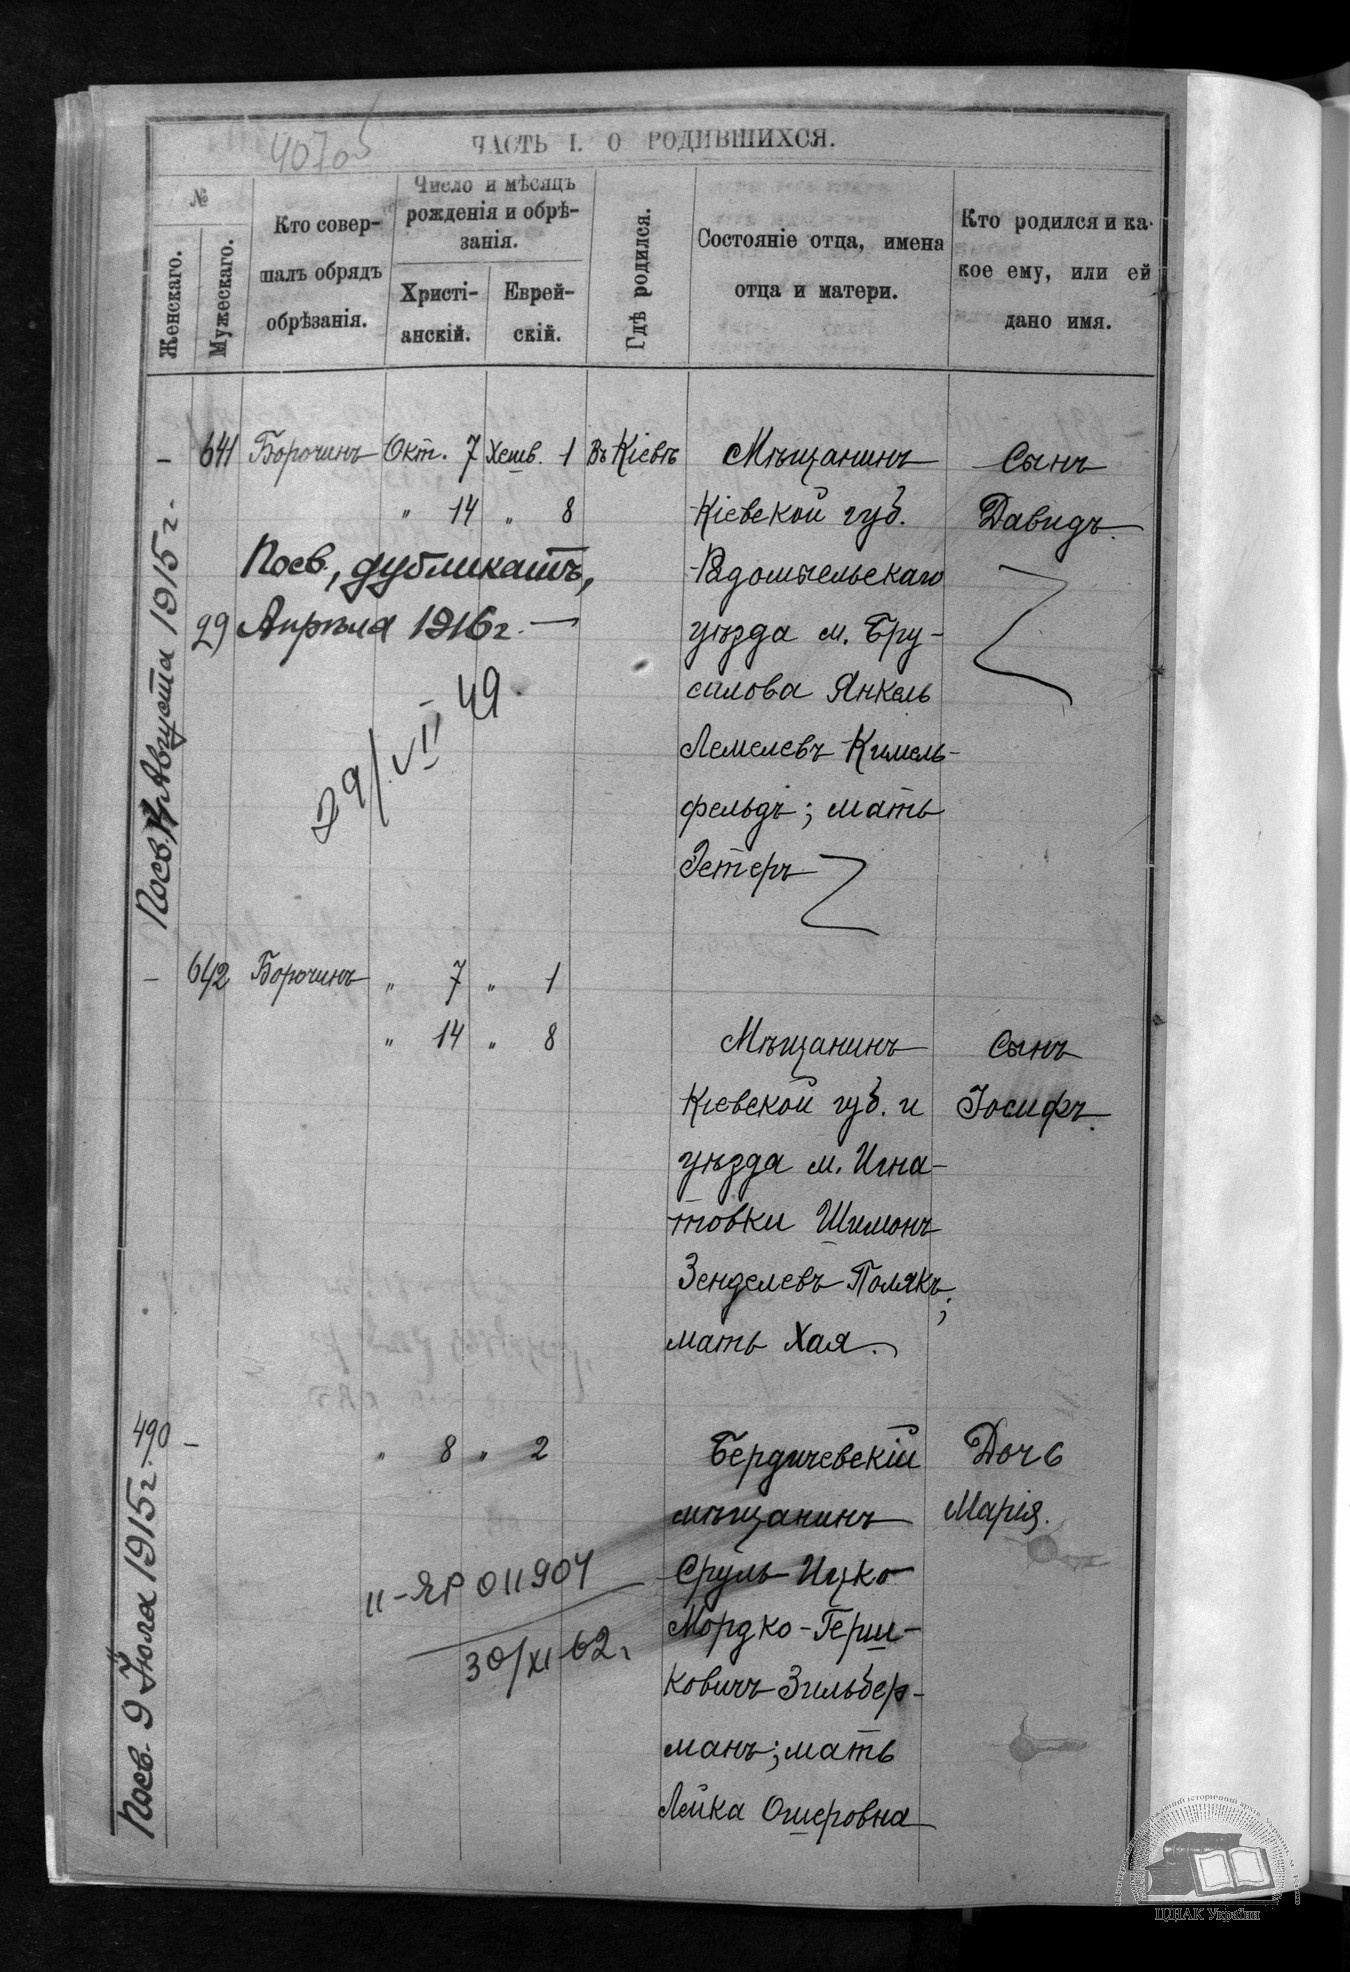 40705
ЧАСТЬ I. О РОДИВШИХСЯ.
№
Женскаго.
Мужескаго.
Кто совер-
шалъ обрядъ
обрѣзанія.
Число и мѣсяцъ
рожденія и обрѣ-
занія.
Христі-
анскій.
Еврей-
скій.
Гдѣ родился.
Состояніе отца, имена
отца и матери.
Кто родился и ка-
кое ему, или ей
дано имя.
– 641 Борочинъ Окт. 7 Хешв. 1 Въ Кіевѣ Мѣщанинъ Сынъ
" 14 " 8 Кіевской губ. Давидъ.
Посв., дубликатъ, Радомысльскаго
29 Апрѣля 1916 г. — уѣзда м. Бру-
силова Янкель
29/VII 49. Лемелевъ Кимель-
фельдъ; мать
Эстеръ
Посв. Августа 1915 г.
– 642 Борочинъ " 7 " 1
" 14 " 8 Мѣщанинъ Сынъ
Кіевской губ. и Іосифъ.
уѣзда м. Игна-
товки Шимонъ
Зенделевъ Полякъ;
мать Хая.
490 – " 8 " 2 Бердичевскій Дочь
мѣщанинъ Марія.
II-ЯР 011904 Сруль-Ицко
Мордко-Герш-
30/XI-62 г. ковичъ Зильбер-
манъ; мать
Лейка Ошеровна
Посв. 9 Іюля 1915 г.
ЦДІАК України